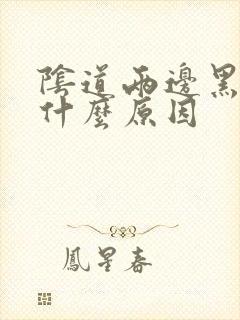 陰道兩邊黑
什麼原因
鳳星春